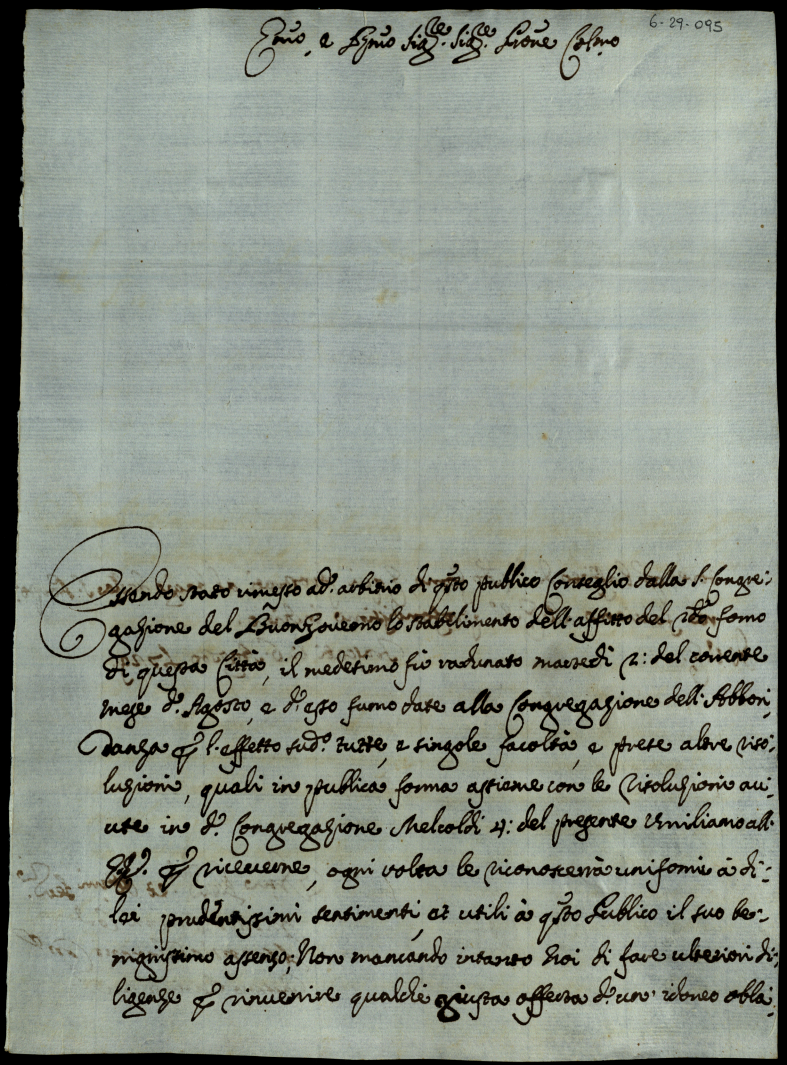 6-29-095
Emo, e Rmo Sigre. Sigre. Prone Colmo
Essendo stato rimesso ad. arbitrio di qsto publico Conseglio dalla S. Congre:
gazione del Buon Governo lo stabelimento dell'affitto del forno
di questa Città, il medesimo fù radunato martedì 2: del corrente
mese d'Agosto, e d. esso furno date alla Congregazione dell'Abbon:
danza p l'effetto sud. tutte, e singole facoltà, e prese altre riso:
luzioni, quali in publica forma assieme con le risoluzioni au:
ute in d. Congregazione Melcoldì 4: del presente umiliamo all'
p riceverne, ogni volta le riconoscerrà uniformi à di:
lei prudentissimi sentimenti, et utili à qsto Publico il suo be:
nignissimo assenso; Non mancando intanto Noi di fare ulteriori di:
ligenze p rinvenire qualche giusta offerta d. un' idoneo obla: